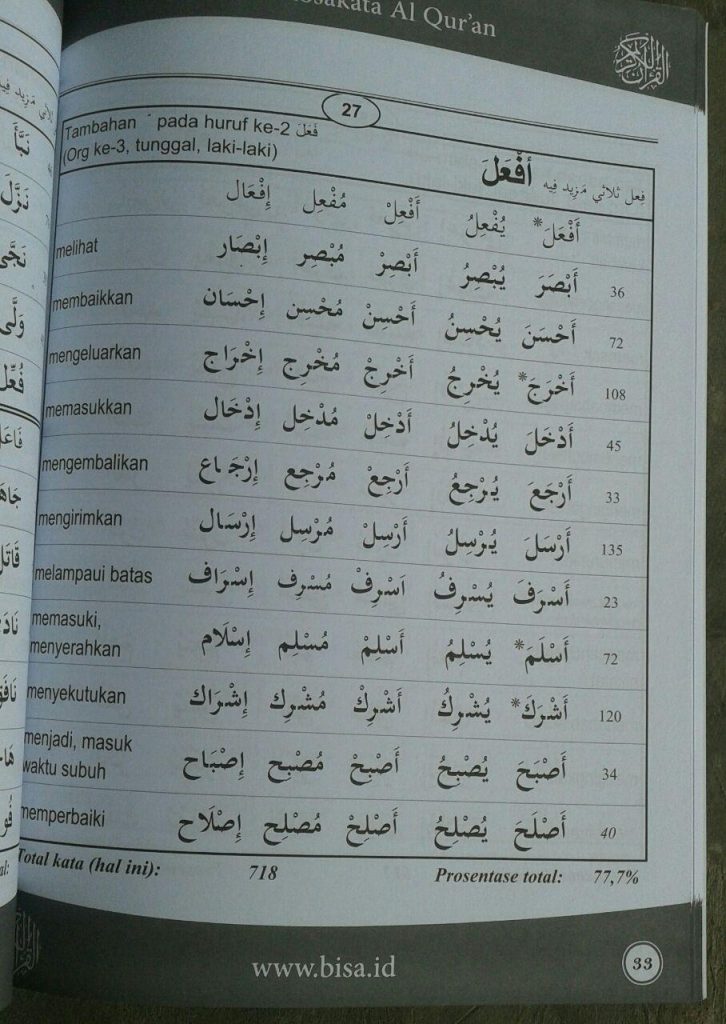 osakata Al Qur'an
27
Tambahan ´ pada huruf ke-2 فَعَلَ
(Org ke-3, tunggal, laki-laki)
فِعل ثلاثي مَزِيد فِيه أَفْعَلَ
أَفْعَلَ* يُفْعِلُ أَفْعِلْ مُفْعِل إِفْعَال
36 أَبْصَرَ يُبْصِرُ أَبْصِرْ مُبْصِر إِبْصَار melihat
72 أَحْسَنَ يُحْسِنُ أَحْسِنْ مُحْسِن إِحْسَان membaikkan
108 أَخْرَجَ* يُخْرِجُ أَخْرِجْ مُخْرِج إِخْرَاج mengeluarkan
45 أَدْخَلَ يُدْخِلُ أَدْخِلْ مُدْخِل إِدْخَال memasukkan
33 أَرْجَعَ يُرْجِعُ أَرْجِعْ مُرْجِع إِرْجَاع mengembalikan
135 أَرْسَلَ يُرْسِلُ أَرْسِلْ مُرْسِل إِرْسَال mengirimkan
23 أَسْرَفَ يُسْرِفُ اَسْرِفْ مُسْرِف إِسْرَاف melampaui batas
72 أَسْلَمَ* يُسْلِمُ أَسْلِمْ مُسْلِم إِسْلَام memasuki,
menyerahkan
120 أَشْرَكَ* يُشْرِكُ أَشْرِكْ مُشْرِك إِشْرَاك menyekutukan
34 أَصْبَحَ يُصْبِحُ أَصْبِحْ مُصْبِح إِصْبَاح menjadi, masuk
waktu subuh
40 أَصْلَحَ يُصْلِحُ أَصْلِحْ مُصْلِح إِصْلَاح memperbaiki
Total kata (hal ini): 718 Prosentase total: 77,7%
www.bisa.id
33